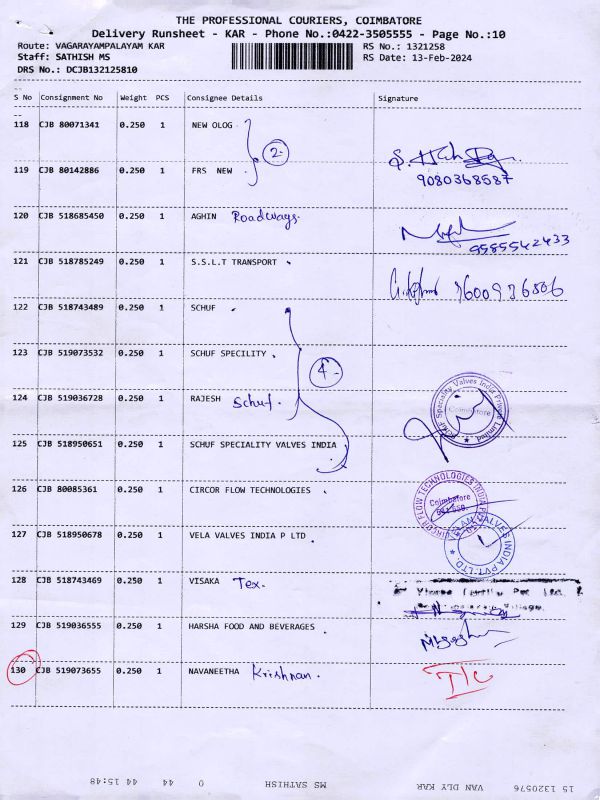 THE PROFESSIONAL COURIERS, COIMBATORE
Delivery Runsheet - KAR - Phone No.:0422-3505555 - Page No.:10
Route: VAGARAYAMPALAYAM KAR
RS No.: 1321258
Staff: SATHISH MS
RS Date: 13-Feb-2024
DRS No.: DCJB132125810
S No Consignment No Weight PCS Consignee Details Signature
118 CJB 80071341 0.250 1 NEW OLOG
2
119 CJB 80142886 0.250 1 FRS NEW
9080368587
120 CJB 518685450 0.250 1 AGHIN Roadways.
9585542433
121 CJB 518785249 0.250 1 S.S.L.T TRANSPORT
9600936506
122 CJB 518743489 0.250 1 SCHUF
123 CJB 519073532 0.250 1 SCHUF SPECILITY
4
124 CJB 519036728 0.250 1 RAJESH Schuf.
Speciality Valves India Private Limited
Coimbatore
125 CJB 518950651 0.250 1 SCHUF SPECIALITY VALVES INDIA
126 CJB 80085361 0.250 1 CIRCOR FLOW TECHNOLOGIES
CIRCOR FLOW TECHNOLOGIES INDIA
Coimbatore
127 CJB 518950678 0.250 1 VELA VALVES INDIA P LTD
VALVES INDIA PVT. LTD.
128 CJB 518743469 0.250 1 VISAKA Tex.
129 CJB 519036555 0.250 1 HARSHA FOOD AND BEVERAGES
130 CJB 519073655 0.250 1 NAVANEETHA Krishnan.
T/C
15 1320576 VAN DLY KAR MS SATHISH 0 44 44 15:48